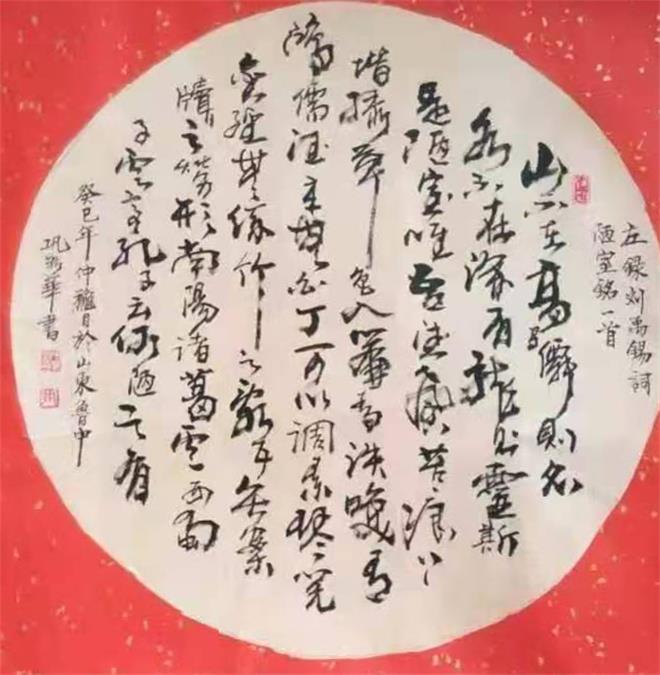 左錄刘禹錫詞
陋室銘一首
山不在高有僊則名
水不在深有龍則靈斯
是陋室唯吾德馨苔痕上
堦綠草色入簾青談笑有
鴻儒往来無白丁可以調素琴閱
金經無絲竹之亂耳無案
牘之勞形南陽諸葛廬西蜀
子雲亭孔子云何陋之有
癸巳年仲龝日於山東魯中
巩華書